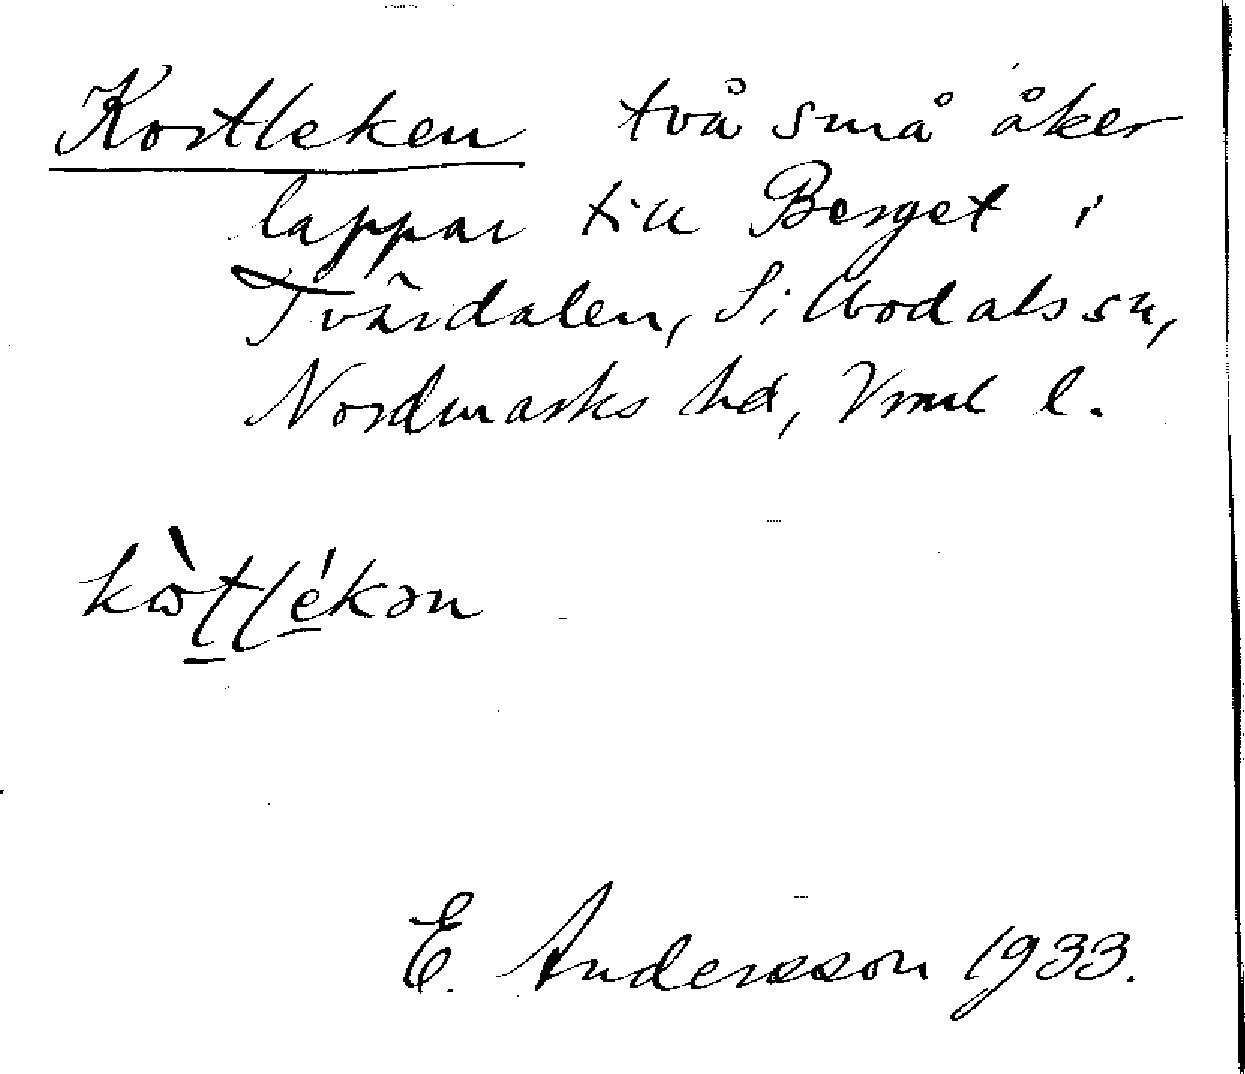 Kortleken två små åker
lappar till Berget i
Tvärdalen, Silbodals sn,
Nordmarks hd, Vrml l.
kòtlékən
E. Andersson 1933.